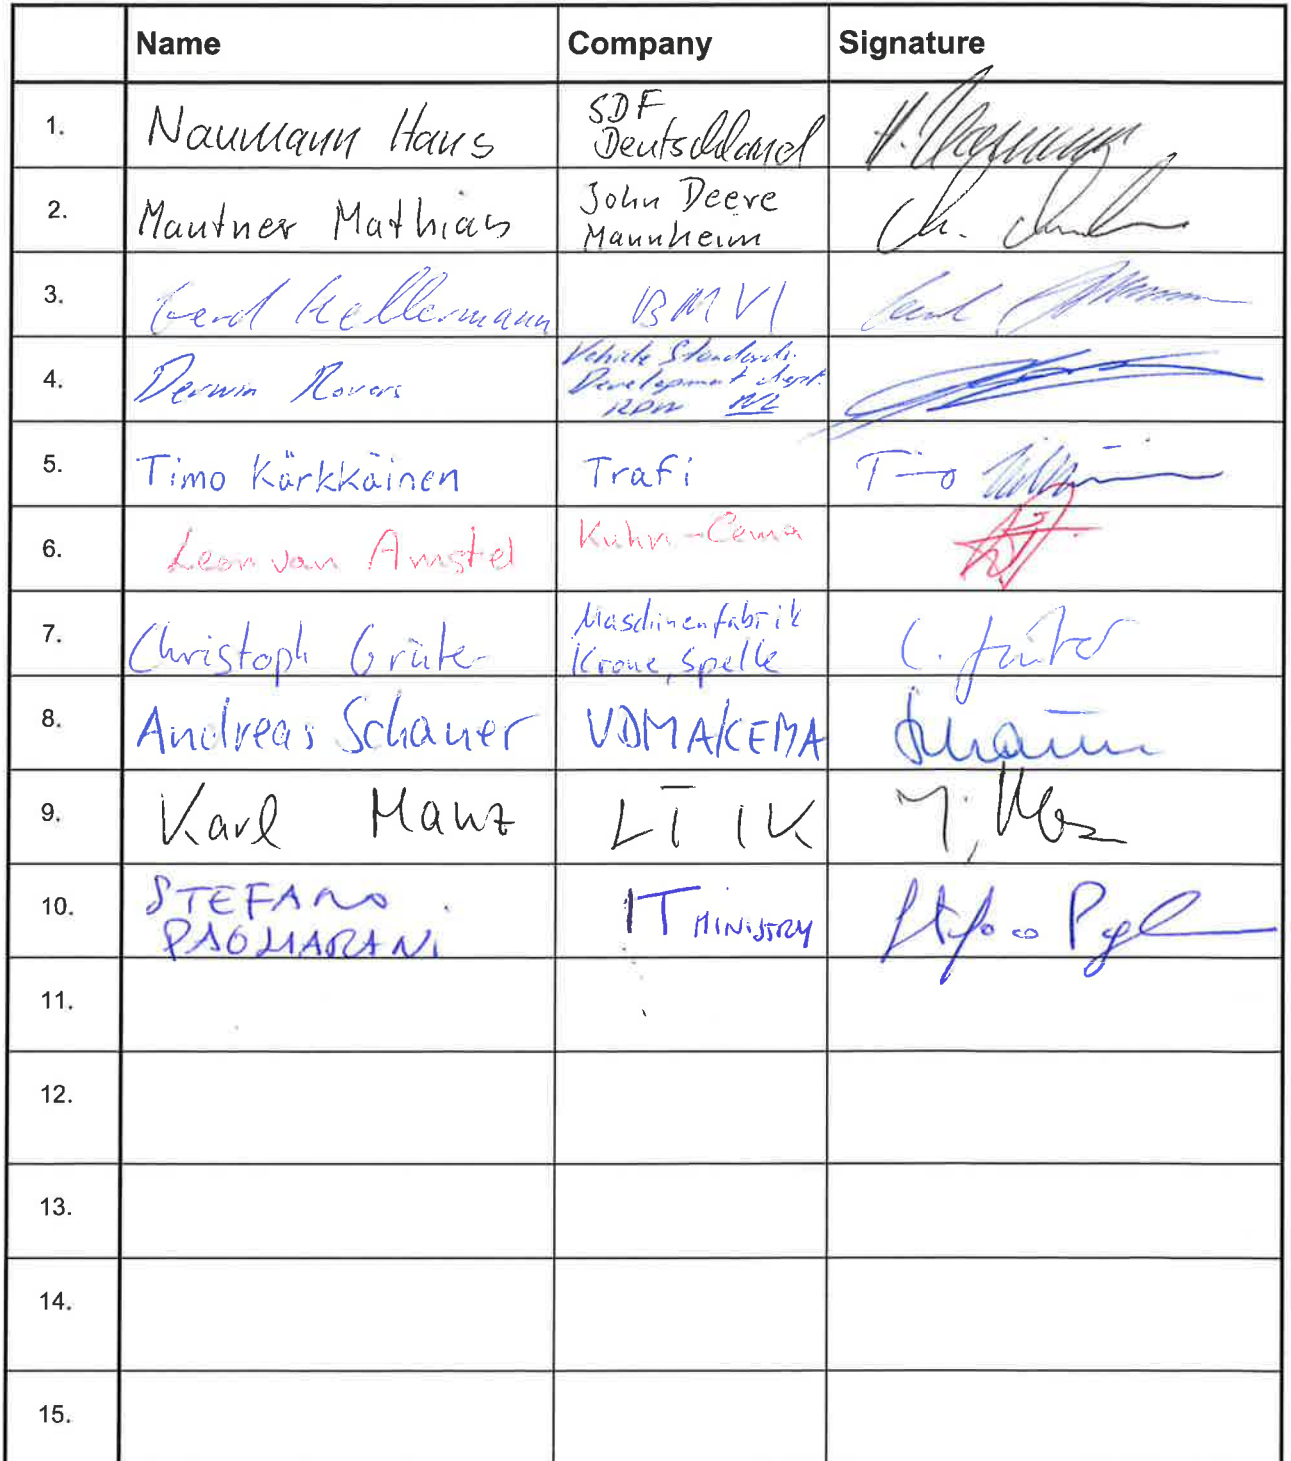 Name Company Signature
1. Naumann Haus SDF
Deutschland
2. Mautner Mathias John Deere
Mannheim
3. Gerd Kellermann BMVI
4. Derwin Rovers Vehicle Standards
Development dept.
RDW NL
5. Timo Kärkkäinen Trafi Timo
6. Leon van Amstel Kuhn-Cema
7. Christoph Grüter Maschinenfabrik
Krone, Spelle C. Grüter
8. Andreas Schauer VDMA/CEMA
9. Karl Manz LTIK
10. STEFANO
PAGMARANI IT MINISTRY
11.
12.
13.
14.
15.